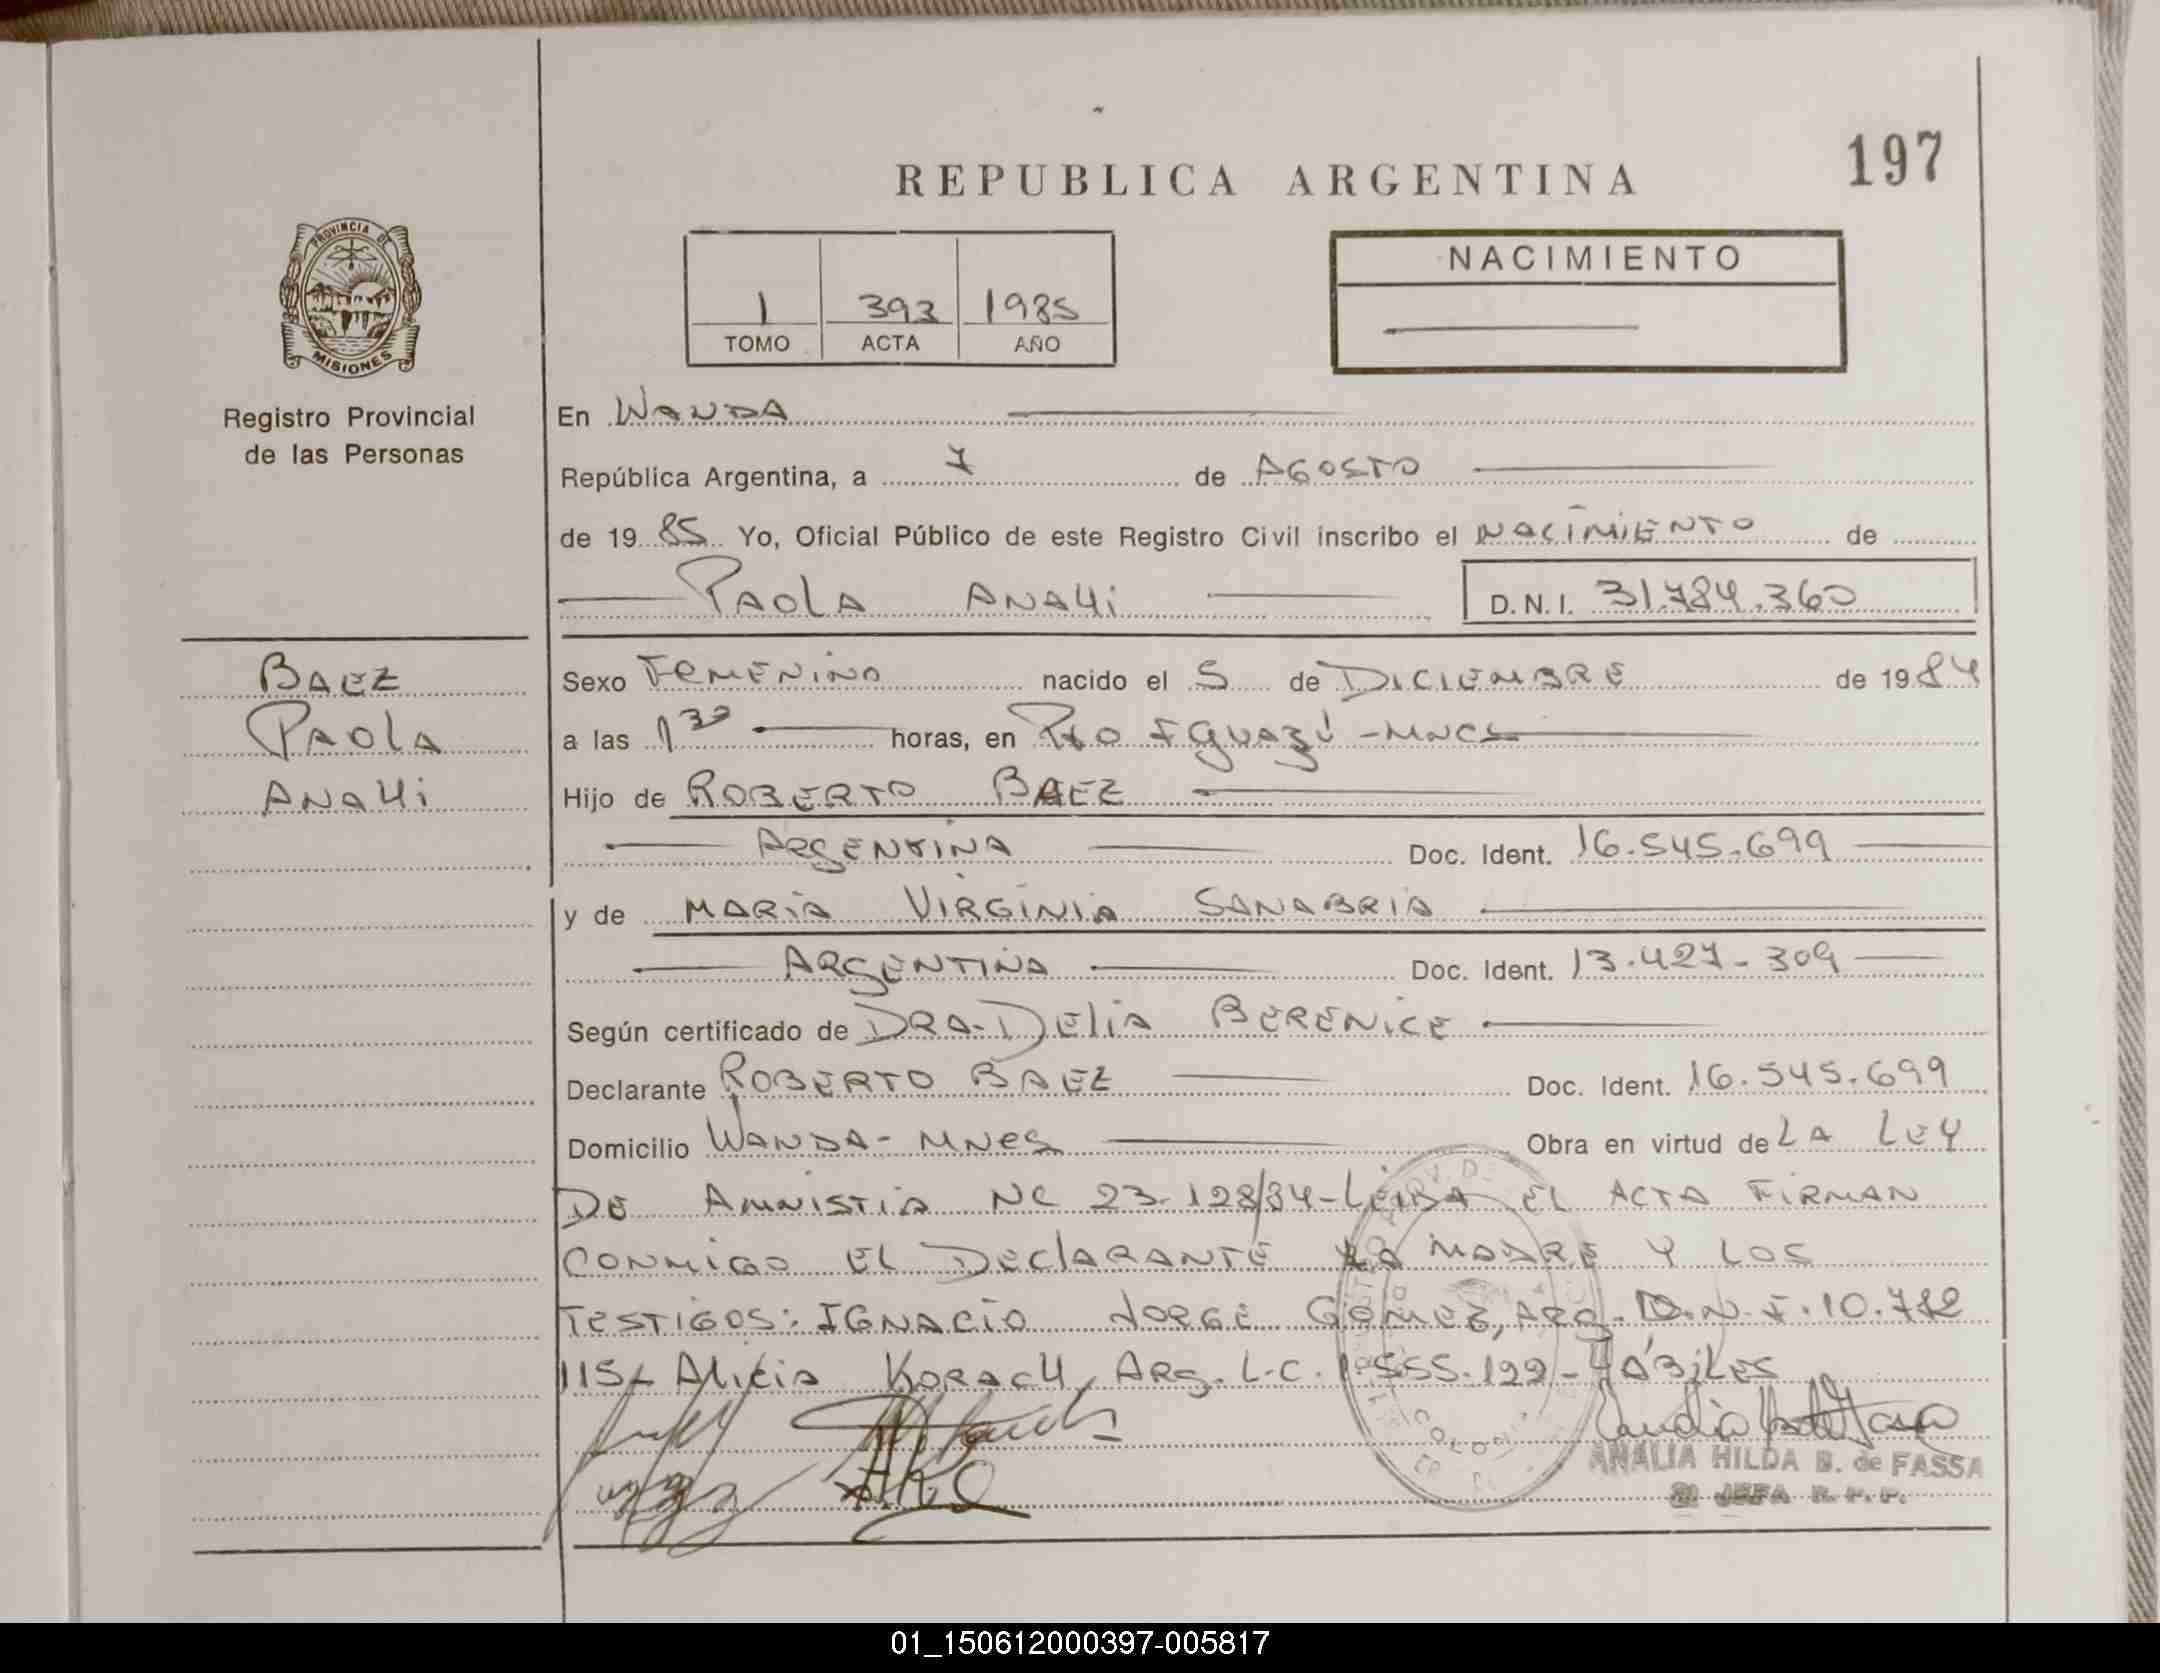 197
REPUBLICA ARGENTINA
PROVINCIA DE
MISIONES
Registro Provincial
de las Personas
1 393 1985
TOMO ACTA AÑO
NACIMIENTO
En WANDA
República Argentina, a 7 de AGOSTO
de 19 85 Yo, Oficial Público de este Registro Civil inscribo el NACIMIENTO de
PAOLA ANAHI D.N.I. 31.784.360
BAEZ
PAOLA
ANAHI
Sexo FEMENINO nacido el 5 de DICIEMBRE de 19 84
a las 1 30 horas, en Pto IGUAZÚ - MNES
Hijo de ROBERTO BAEZ
ARGENTINA Doc. Ident. 16.545.699
y de MARIA VIRGINIA SANABRIA
ARGENTINA Doc. Ident. 13.427.309
Según certificado de DRA. DELIA BERENICE
Declarante ROBERTO BAEZ Doc. Ident. 16.545.699
Domicilio WANDA - MNES Obra en virtud de LA LEY
DE AMNISTIA NC 23.128/84 - LEIDA EL ACTA FIRMAN
CONMIGO EL DECLARANTE LA MADRE Y LOS
TESTIGOS: IGNACIO JORGE GOMEZ, ARG. D.N.I. 10.712
115 - Alicia KORACH, ARG. L.C. 1.555.122 - HÁBILES
ANALIA HILDA B. de FASSA
JEFA R. P. P.
01_150612000397-005817